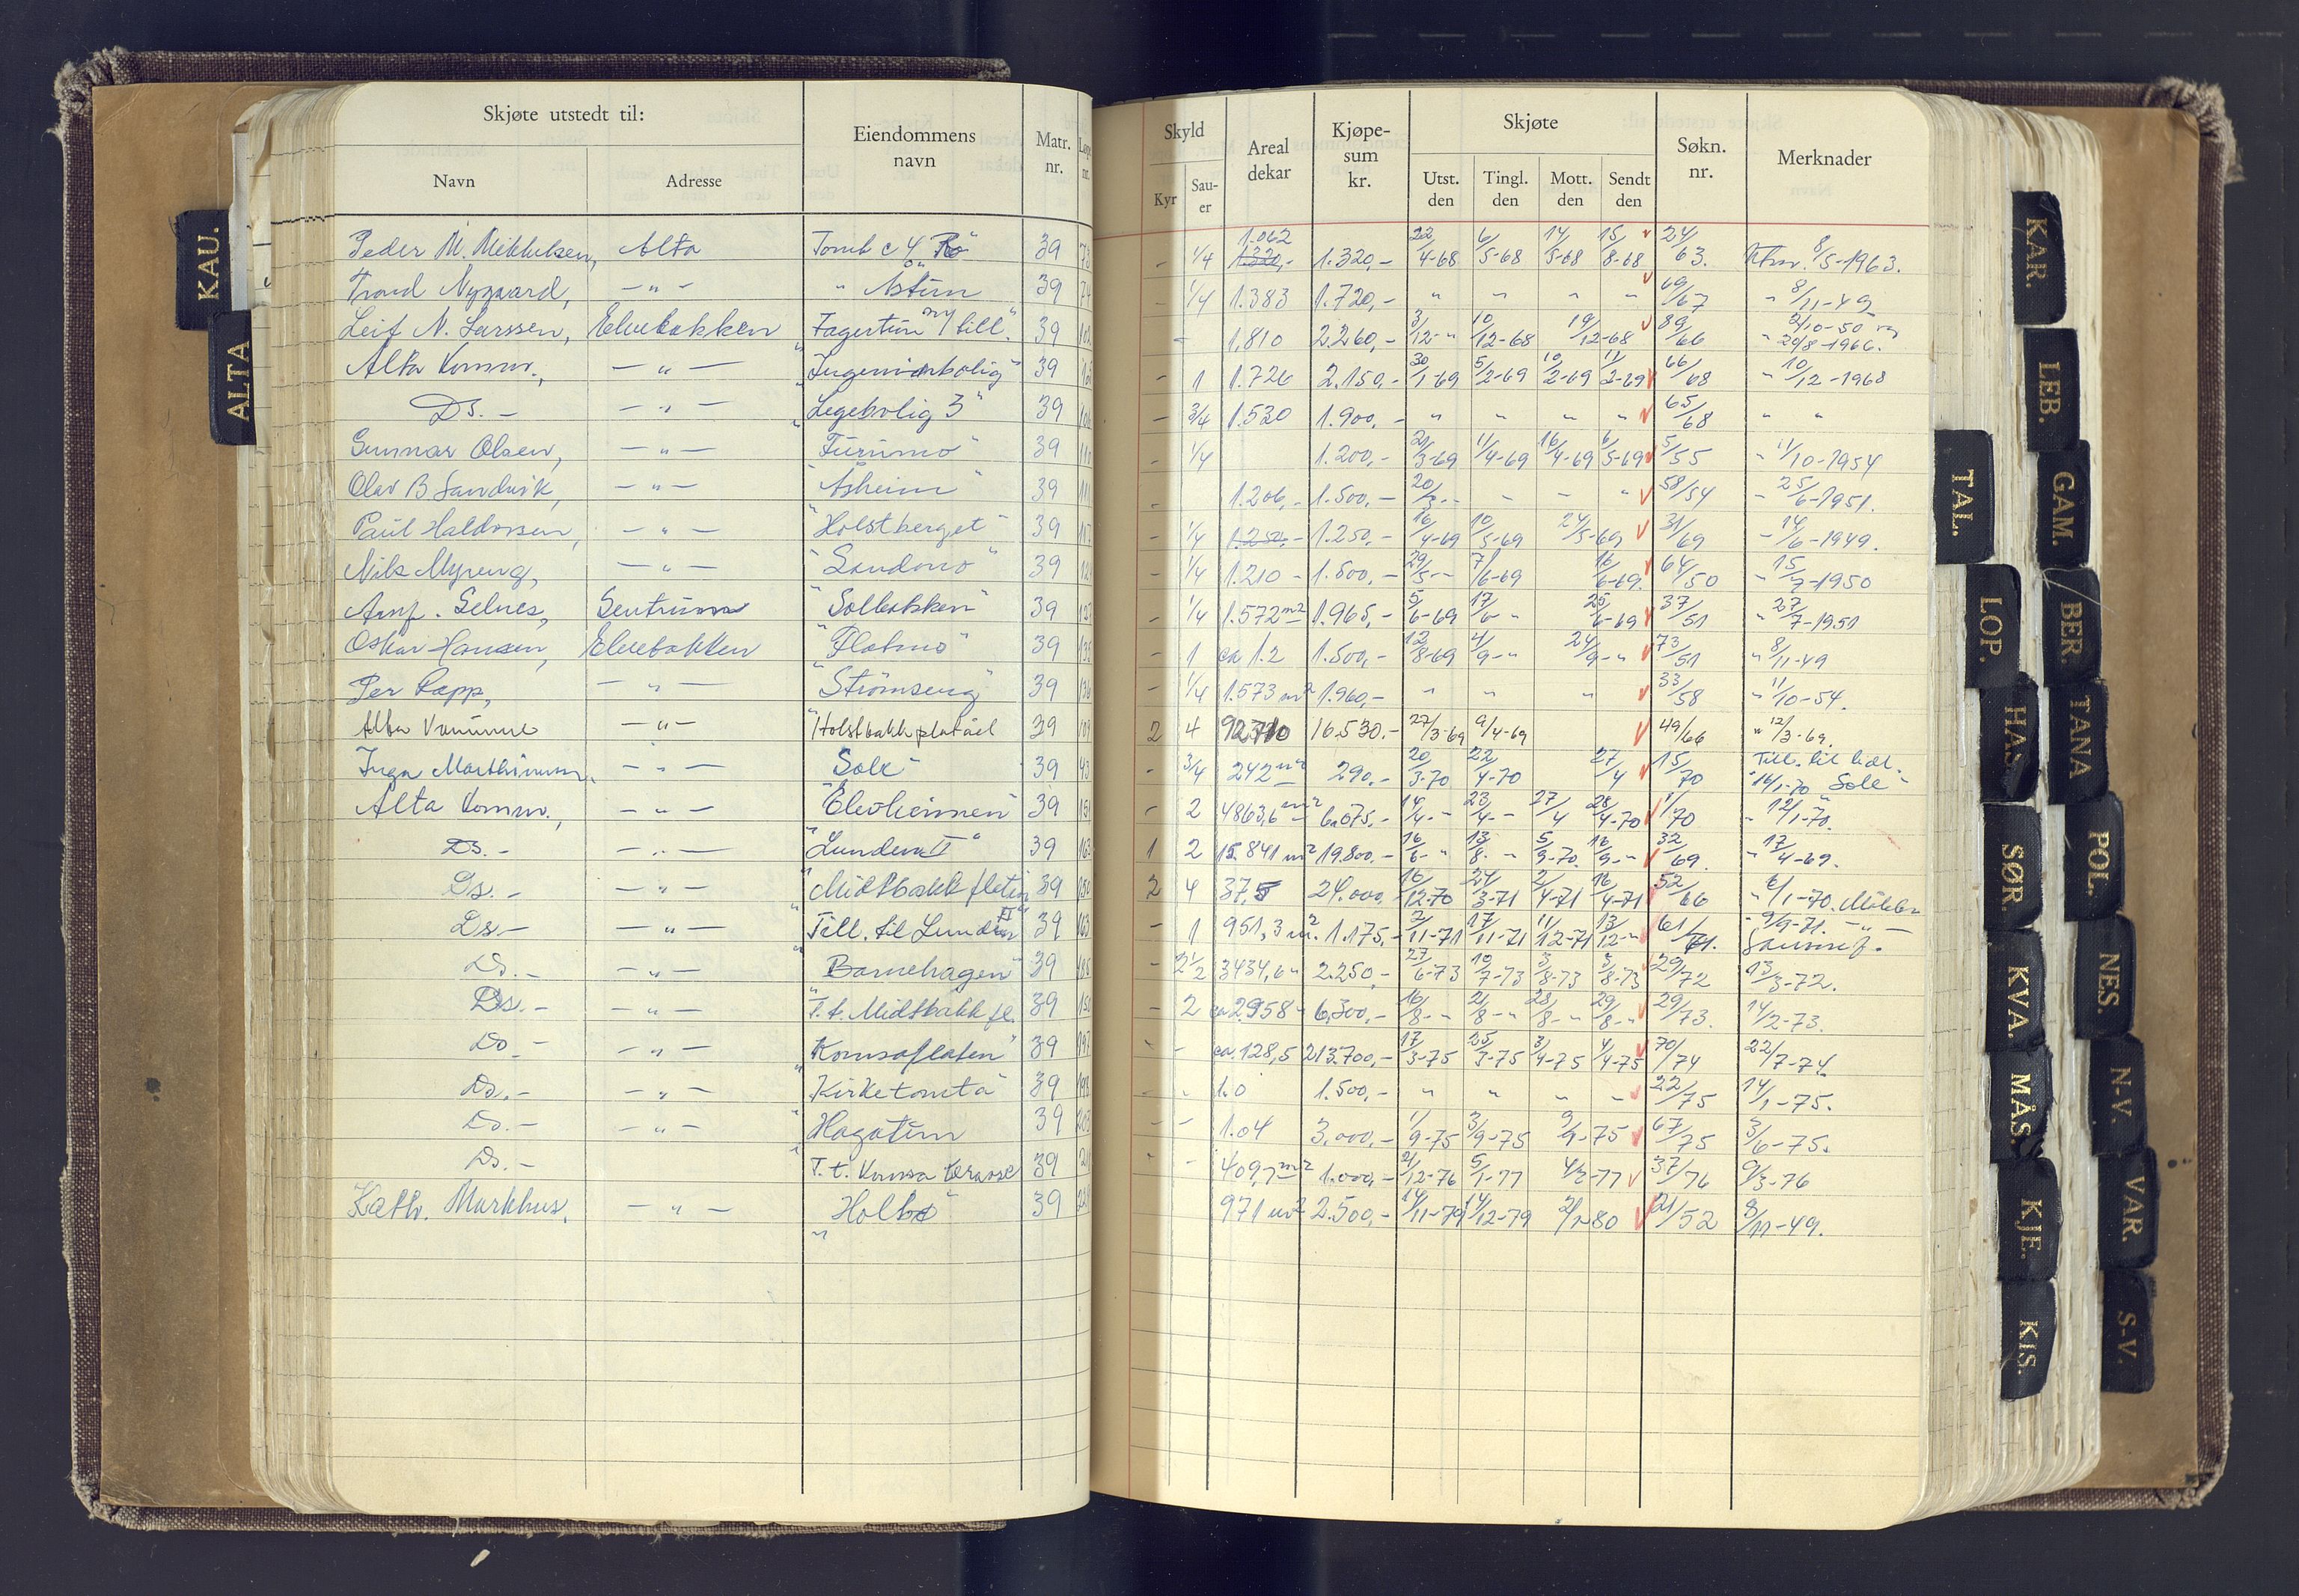 Skjøte utstedt til:
Navn Adresse Eiendommens navn Matr. nr.
Skyld Kyr Sauer Areal dekar Kjøpesum kr. Skjøte Utst. den Tingl. den Mott. den Sendt den Søkn. nr. Merknader
Peder M. Mikkelsen, Alta Tomt c 4 "Ro" 39 - 1/4 1.062 1.320,- 1.320,- 22/4-68 6/5-68 14/5-68 15/8-68 24/63. 8/5-1963.
Trond Nygaard, -"- " Åstun 39 - 1/4 1.383 1.720,- " " " " 69/67 " 8/11-49
Leif N. Larssen, Elvebakken Fagertun till. 39 - 1.810 2.260,- 3/12-" 10/12-68 19/12-68 89/66 " 2/10-50 og " 29/8-1966.
Alta Komm., -"- "Ingeniørbolig" 39 - 1 1.726 2.150,- 30/1-69 5/2-69 10/2-69 11/2-69 66/68 " 10/12-1968
Ds.- -"- "Legebolig 3" 39 - 3/4 1.530 1.900,- " " " " 65/68 " "
Gunnar Olsen, -"- "Furumo" 39 - 1/4 1.200,- 21/3-69 11/4-69 16/4-69 6/5-69 5/55 " 11/10-1954
Olav B Sandvik, -"- "Åsheim" 39 1.206,- 1.500,- 20/3-- - - " 58/54 " 25/6-1951.
Paul Haldorsen, -"- "Holstberget" 39 - 1/4 1.250,- 1.250,- 16/4-69 10/5-69 24/5-69 31/69 " 14/6-1949.
Nils Myreng, -"- "Sandmo" 39 - 1/4 1.210 - 1.500,- 29/5-- 7/6-69 16/6-69. 64/50 " 15/7-1950
Arnf. Selnes, Sentrum "Solbakken" 39 - 1/4 1.572 m² 1.965,- 5/6-69 17/6-" 25/6-69 37/51 " 27/7-1951
Oskar Hansen, Elvebakken "Flatmo" 39 - 1 ca 1.2 1.500,- 12/8-69 4/9-" 24/9-" 73/51 " 8/11-49
Per Rapp, -"- "Strømseng" 39 - 1/4 1.573 m² 1.960,- " " " 33/58 " 11/10-54.
Alta Kommune -"- "Holstbakkplatået 39 2 4 16.530.- 27/3-69 9/4-69 49/66 " 12/3-69.
Inga Marthinsen, -"- Sole 39 - 3/4 242 m² 290,- 20/3-70 22/4-70 27/4 15/70 Till. til
" 14/1-70 "Sole"
Alta Komm., -"- "Elevheimen" 39 - 2 4863,6 m² 6.075,- 14/4-- 23/4-- 27/4 28/4-70 1/70 " 12/1-70.
Ds.- -"- "Lunden II" 39 1 2 15.841 m² 19.800,- 16/6-" 13/8-" 5/9-70. 16/9-" 32/69. " 17/4-69.
Ds.- -"- "Midtbakkfleten 39 2 4 37,5 24.000,- 16/12-70 24/3-71 2/4-71 16/4-71 52/66 " 6/1-70.
Ds- -"- "Till. til Lunden II" 39 - 1 951,3 m² 1.175,- 2/11-71 17/11-71 11/12-71 13/12-" 61/71. " 9/9-71. -"-
Ds.- -"- "Barnehagen" 39 - 2 1/2 3434,6 " 2.250,- 27/6-73 10/7-73 3/8-73 3/8-73 29/72 13/3-72.
Ds.- -"- "T.t. Midtbakkfl. 39 - 2 ca 2958 " 6,300,- 16/8-" 21/8-" 28/8-" 29/8-" 29/73. 14/2-73.
Do.- -"- "Komsaflaten" 39 - - ca. 128,5 213.700,- 17/3-75 25/3-75 3/4-75 4/4-75 70/74 22/7-74.
Ds.- -"- "Kirketomta" 39 - - 1.0 1.500,- " " " - 22/75 14/1-75.
Ds.- -"- "Hagatun 39 - - 1.04 3,000,- 1/9-75 3/9-75 9/9-75 67/75 3/6-75.
Ds.- "T.t. Komsa terasse 39 - - 409,7 m² 1.000,- 21/12-76 5/1-77 4/2-77 37/76 9/3-76
Kath. Markhus. -"- "Holbo" 39 971 m² 2.500,- 14/11-79 14/12-79 2/1-80 21/52 8/11-49.
KAU.
ALTA
KAR.
LEB.
GAM.
TAL.
BER.
LOP.
TANA
HAS.
POL.
SØR.
NES.
KVA.
N-V.
MÅS.
VAR.
KJE.
S-V.
KIS.